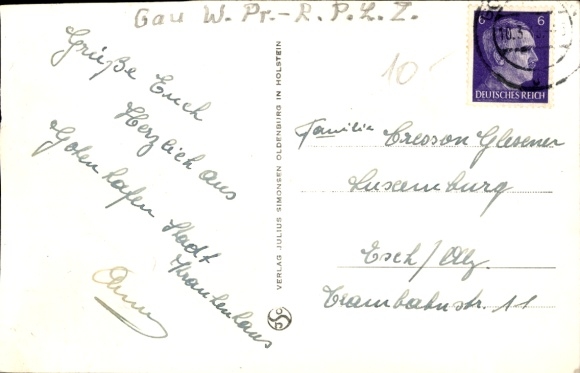 Gau W. Pr. - R. P. L. Z.
Grüße Euch
Herzlich aus
Gotenhafen Stadt
Krankenhaus
10
VERLAG JULIUS SIMONSEN OLDENBURG IN HOLSTEIN
6 6
DEUTSCHES REICH
10.3.
Familie Cresson Glesener
Luxemburg
Esch/Alz.
Trambahnstr. 11